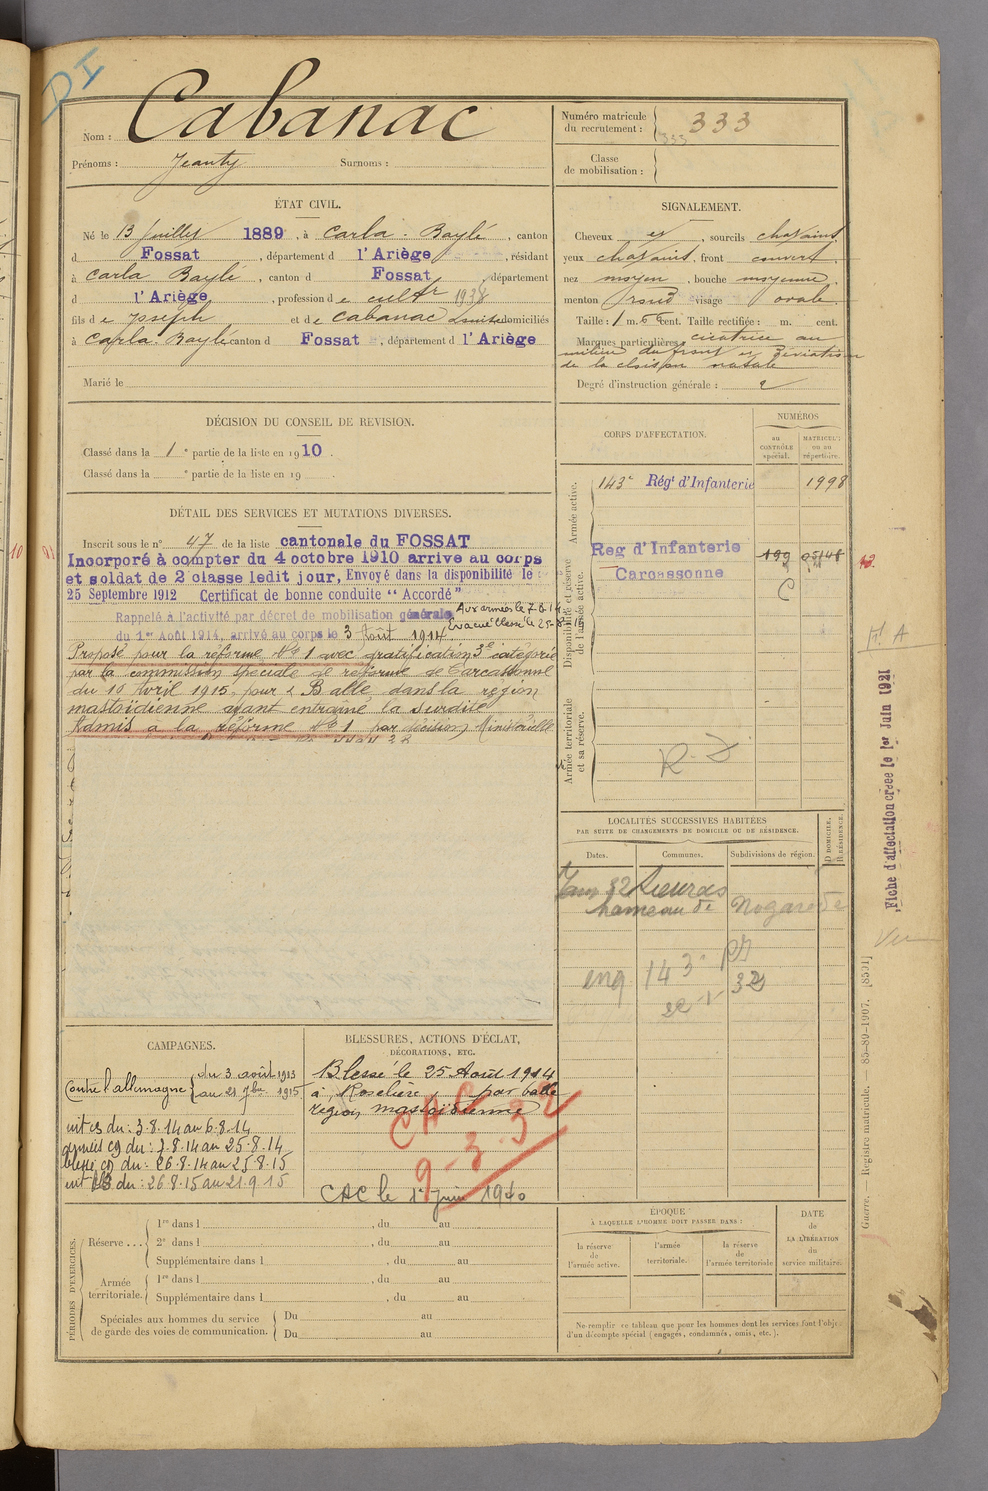 DI
Nom : Cabanac
Prénoms : Jeanty Surnoms :
Numéro matricule du recrutement : 333
333
Classe de mobilisation :
ÉTAT CIVIL.
Né le 13 juillet 1889, à Carla-Baylé, canton
d Fossat, département d l'Ariège, résidant
à Carla Baylé, canton d Fossat, département
d l'Ariège, profession d e cultr 1938
fils d e Joseph et d e Cabanac Louise domiciliés
à Carla-Baylé canton d Fossat, département d l'Ariège
Marié le
SIGNALEMENT.
Cheveux et, sourcils chatains
yeux chatains, front couvert
nez moyen, bouche moyenne
menton rond visage ovale
Taille : 1 m. 66 cent. Taille rectifiée : m. cent.
Marques particulières : cicatrice au
milieu du front et déviation
de la cloison nasale
Degré d'instruction générale : 2
DÉCISION DU CONSEIL DE REVISION.
Classé dans la 1e partie de la liste en 1910.
Classé dans la e partie de la liste en 19
CORPS D'AFFECTATION.
NUMÉROS
au CONTRÔLE spécial.
MATRICULE ou au répertoire.
Armée active.
143e Régt d'Infanterie 1998
Disponibilité et réserve de l'armée active.
Reg d'Infanterie
Carcassonne
Armée territoriale et sa réserve.
DÉTAIL DES SERVICES ET MUTATIONS DIVERSES.
Inscrit sous le n° 47 de la liste cantonale du FOSSAT
Incorporé à compter du 4 octobre 1910 arrivé au corps
et soldat de 2 classe ledit jour, Envoyé dans la disponibilité le
25 Septembre 1912 Certificat de bonne conduite "Accordé"
Rappelé à l'activité par décret de mobilisation générale Aux armées le 7-8-14
du 1er Août 1914, arrivé au corps le 3 Août 1914. Evacué blessé le 25-8-14
Proposé pour la réforme No 1 avec gratification 3e catégorie
par la commission spéciale de réforme de Carcassonne
du 10 Avril 1915, pour 2 Balle dans la région
mastoïdienne ayant entraîné la surdité
Admis à la réforme No 1 par décision Ministérielle
Fiche d'affectation créée le 1er Juin 1921
LOCALITÉS SUCCESSIVES HABITÉES
PAR SUITE DE CHANGEMENTS DE DOMICILE OU DE RÉSIDENCE.
Dates. Communes. Subdivisions de région. D DOMICILE. R RÉSIDENCE.
32 Sieuras
hameau de Nogarede
143e
32
CAMPAGNES.
Contre l'allemagne { du 3 août 1913
au 21 7bre 1915
int cs du : 3.8.14 au 6.8.14
armées cg du : 7.8.14 au 25.8.14
blessé cg du : 26.8.14 au 25.8.15
int cs du : 26.8.15 au 21.9.15
BLESSURES, ACTIONS D'ÉCLAT,
DÉCORATIONS, ETC.
Blessé le 25 Août 1914
à Roselière, par balle
région mastoïdienne
CAC
9-3-32
CAC le 1er juin 1940
PÉRIODES D'EXERCICES.
Réserve ... 1re dans l , du au
2e dans l , du au
Supplémentaire dans l , du au
Armée territoriale. 1re dans l , du au
Supplémentaire dans l , du au
Spéciales aux hommes du service de garde des voies de communication. Du au
Du au
ÉPOQUE
À LAQUELLE L'HOMME DOIT PASSER DANS :
la réserve de l'armée active.
l'armée territoriale.
la réserve de l'armée territoriale
DATE de LA LIBÉRATION du service militaire.
Ne remplir ce tableau que pour les hommes dont les services font l'objet
d'un décompte spécial (engagés, condamnés, omis, etc.).
Guerre. — Registre matricule. — 85-89-1907. [8501]